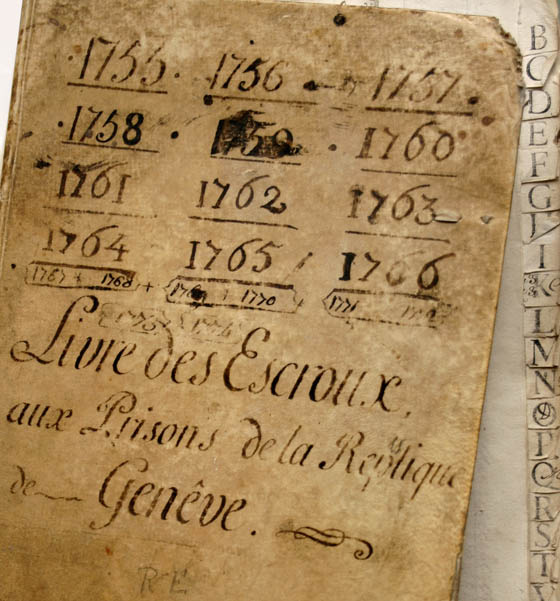 1755 1756 1757
1758 1759 1760
1761 1762 1763
1764 1765 1766
1767 + 1768 + 1770 1771
Livre des Escroux,
aux Prisons de la Rép^que
de Genêve.
RE
B
C
D
E
F
G
I
K
L
M
N
O
R
S
T
V